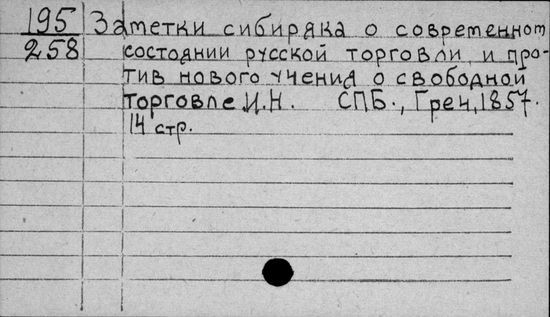 195 Заметки сибиряка о современном
258 состоянии русской торговли и про-
тив нового учения о свободной
торговле И.Н. СПБ., Греч, 1857.
14 стр.